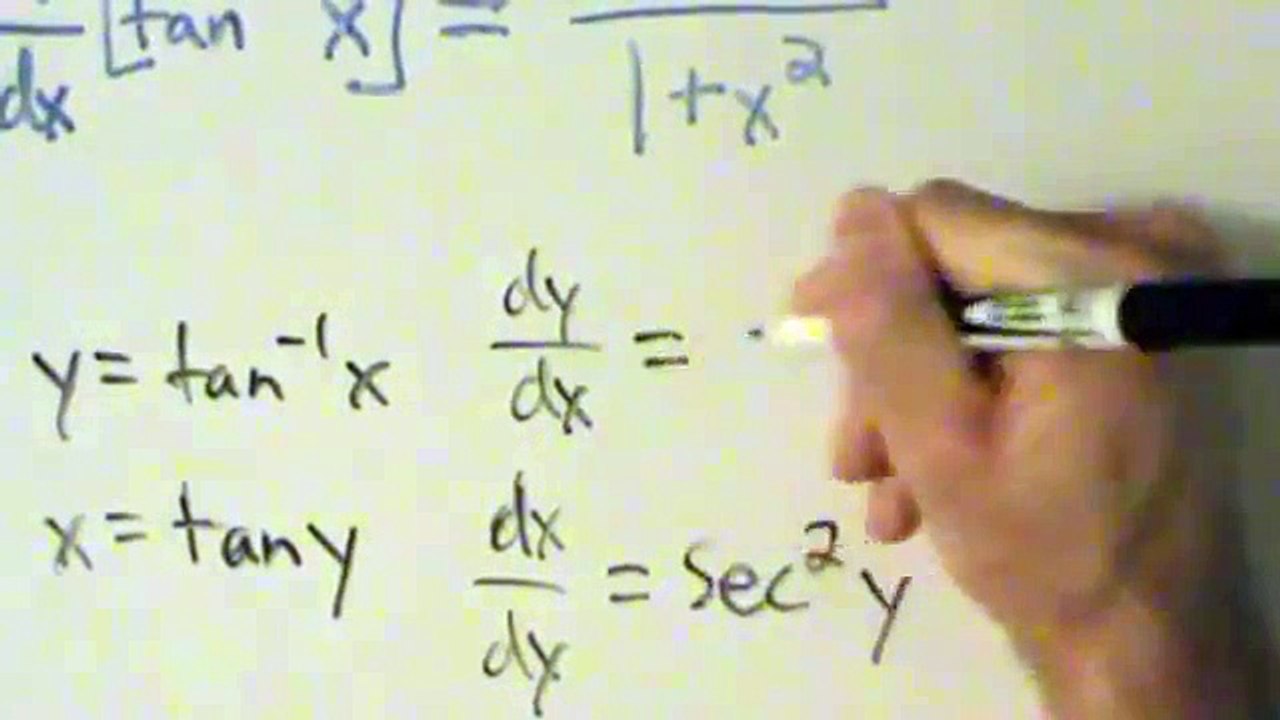 dx [tan x] = 1+x²
y = tan⁻¹x dy/dx =
x = tan y dx/dy = sec² y